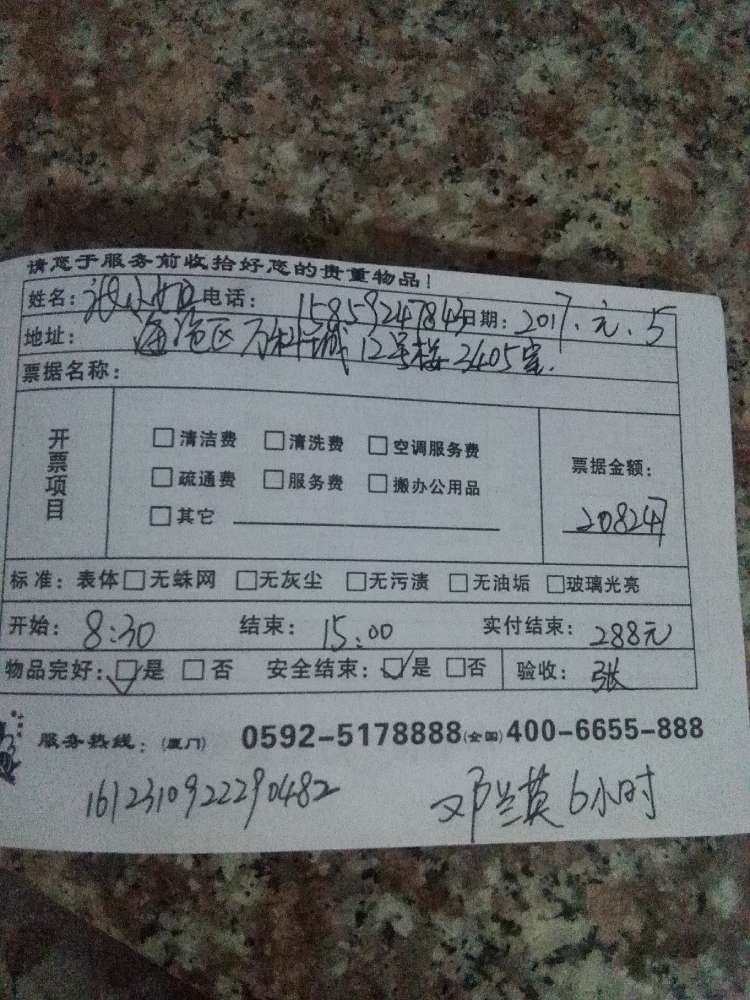 请您于服务前收拾好您的贵重物品!
姓名:张小姐 电话: 15859247843 日期: 2017.元.5
地址: 海沧区万科城12号楼2405室.
票据名称:
开票项目
□清洁费 □清洗费 □空调服务费
□疏通费 □服务费 □搬办公用品
□其它
票据金额:
208247
标准: 表体□无蛛网 □无灰尘 □无污渍 □无油垢 □玻璃光亮
开始: 8:30 结束: 15:00 实付结束: 288元
物品完好:☑是 □否 安全结束:☑是 □否 验收: 张
服务热线: (厦门) 0592-5178888 (全国) 400-6655-888
1612310922290482 邓兰英 6小时